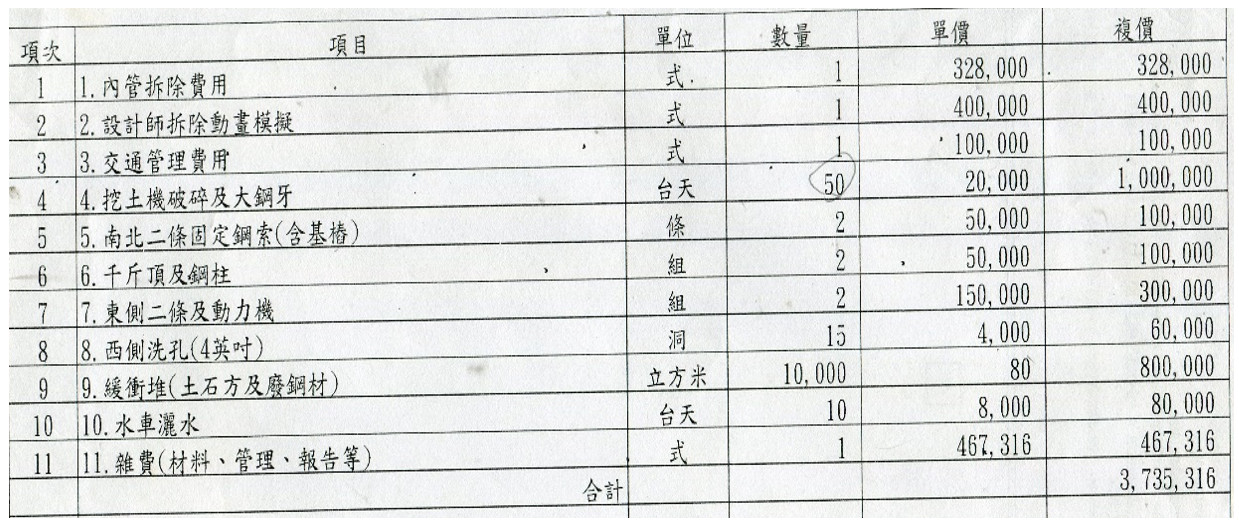 項次 項目 單位 數量 單價 複價
1 1.內管拆除費用 式 1 328,000 328,000
2 2.設計師拆除動畫模擬 式 1 400,000 400,000
3 3.交通管理費用 式 1 100,000 100,000
4 4.挖土機破碎及大鋼牙 台天 50 20,000 1,000,000
5 5.南北二條固定鋼索(含基樁) 條 2 50,000 100,000
6 6.千斤頂及鋼柱 組 2 50,000 100,000
7 7.東側二條及動力機 組 2 150,000 300,000
8 8.西側洗孔(4英吋) 洞 15 4,000 60,000
9 9.緩衝堆(土石方及廢鋼材) 立方米 10,000 80 800,000
10 10.水車灑水 台天 10 8,000 80,000
11 11.雜費(材料、管理、報告等) 式 1 467,316 467,316
合計 3,735,316